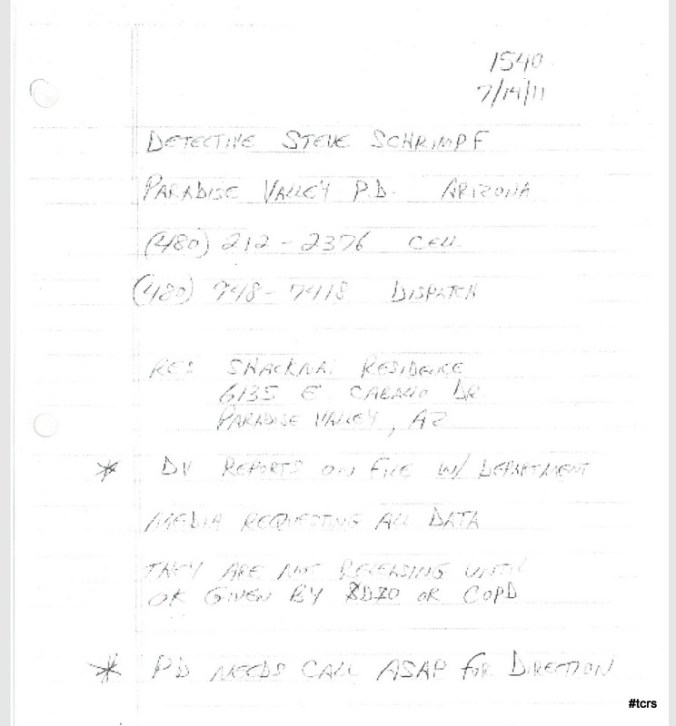 1540
7/14/11
DETECTIVE STEVE SCHRIMPF
PARADISE VALLEY P.D. ARIZONA
(480) 212-2376 CELL
(480) 948-7418 DISPATCH
RE: SHACKNAI RESIDENCE
6135 E CABALLO DR
PARADISE VALLEY, AZ
* DV REPORTS ON FILE W/ DEPARTMENT
MEDIA REQUESTING ALL DATA
THEY ARE NOT RELEASING UNTIL
OK GIVEN BY OR COPD
* PD NEEDS CALL ASAP FOR DIRECTION
#tcrs